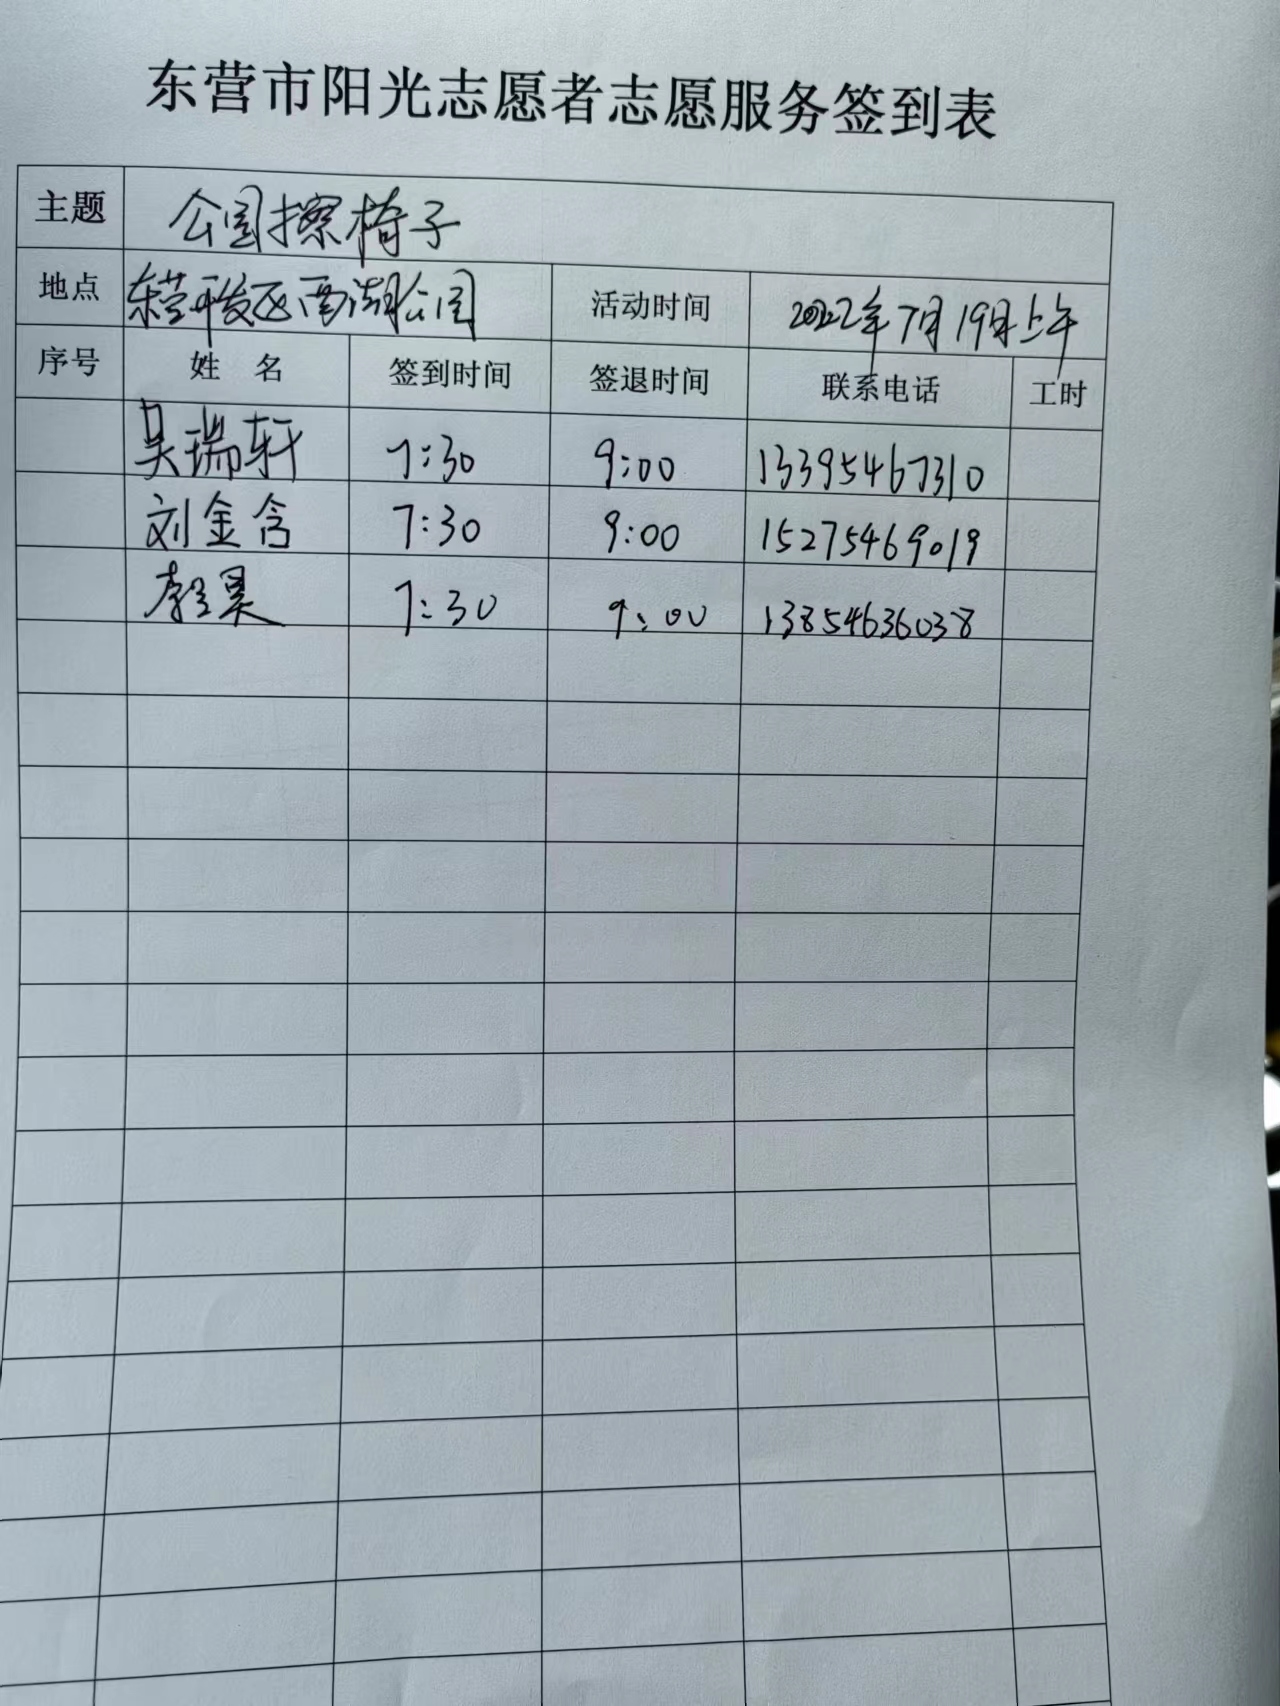 东营市阳光志愿者志愿服务签到表
主题 公园擦椅子
地点 东营开发区西湖公园 活动时间 2022年7月19日上午
序号 姓 名 签到时间 签退时间 联系电话 工时
吴瑞轩 7:30 9:00 13395467310
刘金含 7:30 9:00 15275469019
7:30 9:00 13854636038